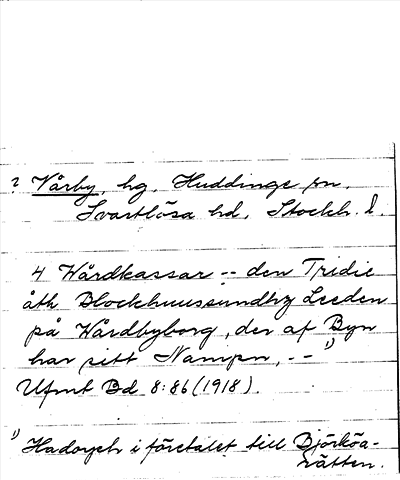 2 Vårby, hg, Huddinge sn.
Svartlösa hd. Stockh. l.
4 Wårdkassar -- den Tridie
åth Blockhuussundhz Leeden
på Wårdbyborg, der af Byn
har sitt Nampn, -- 1)
Ufmt Bd 8:86 (1918).
1) Hadorph i företalet till Björköa-
rätten.